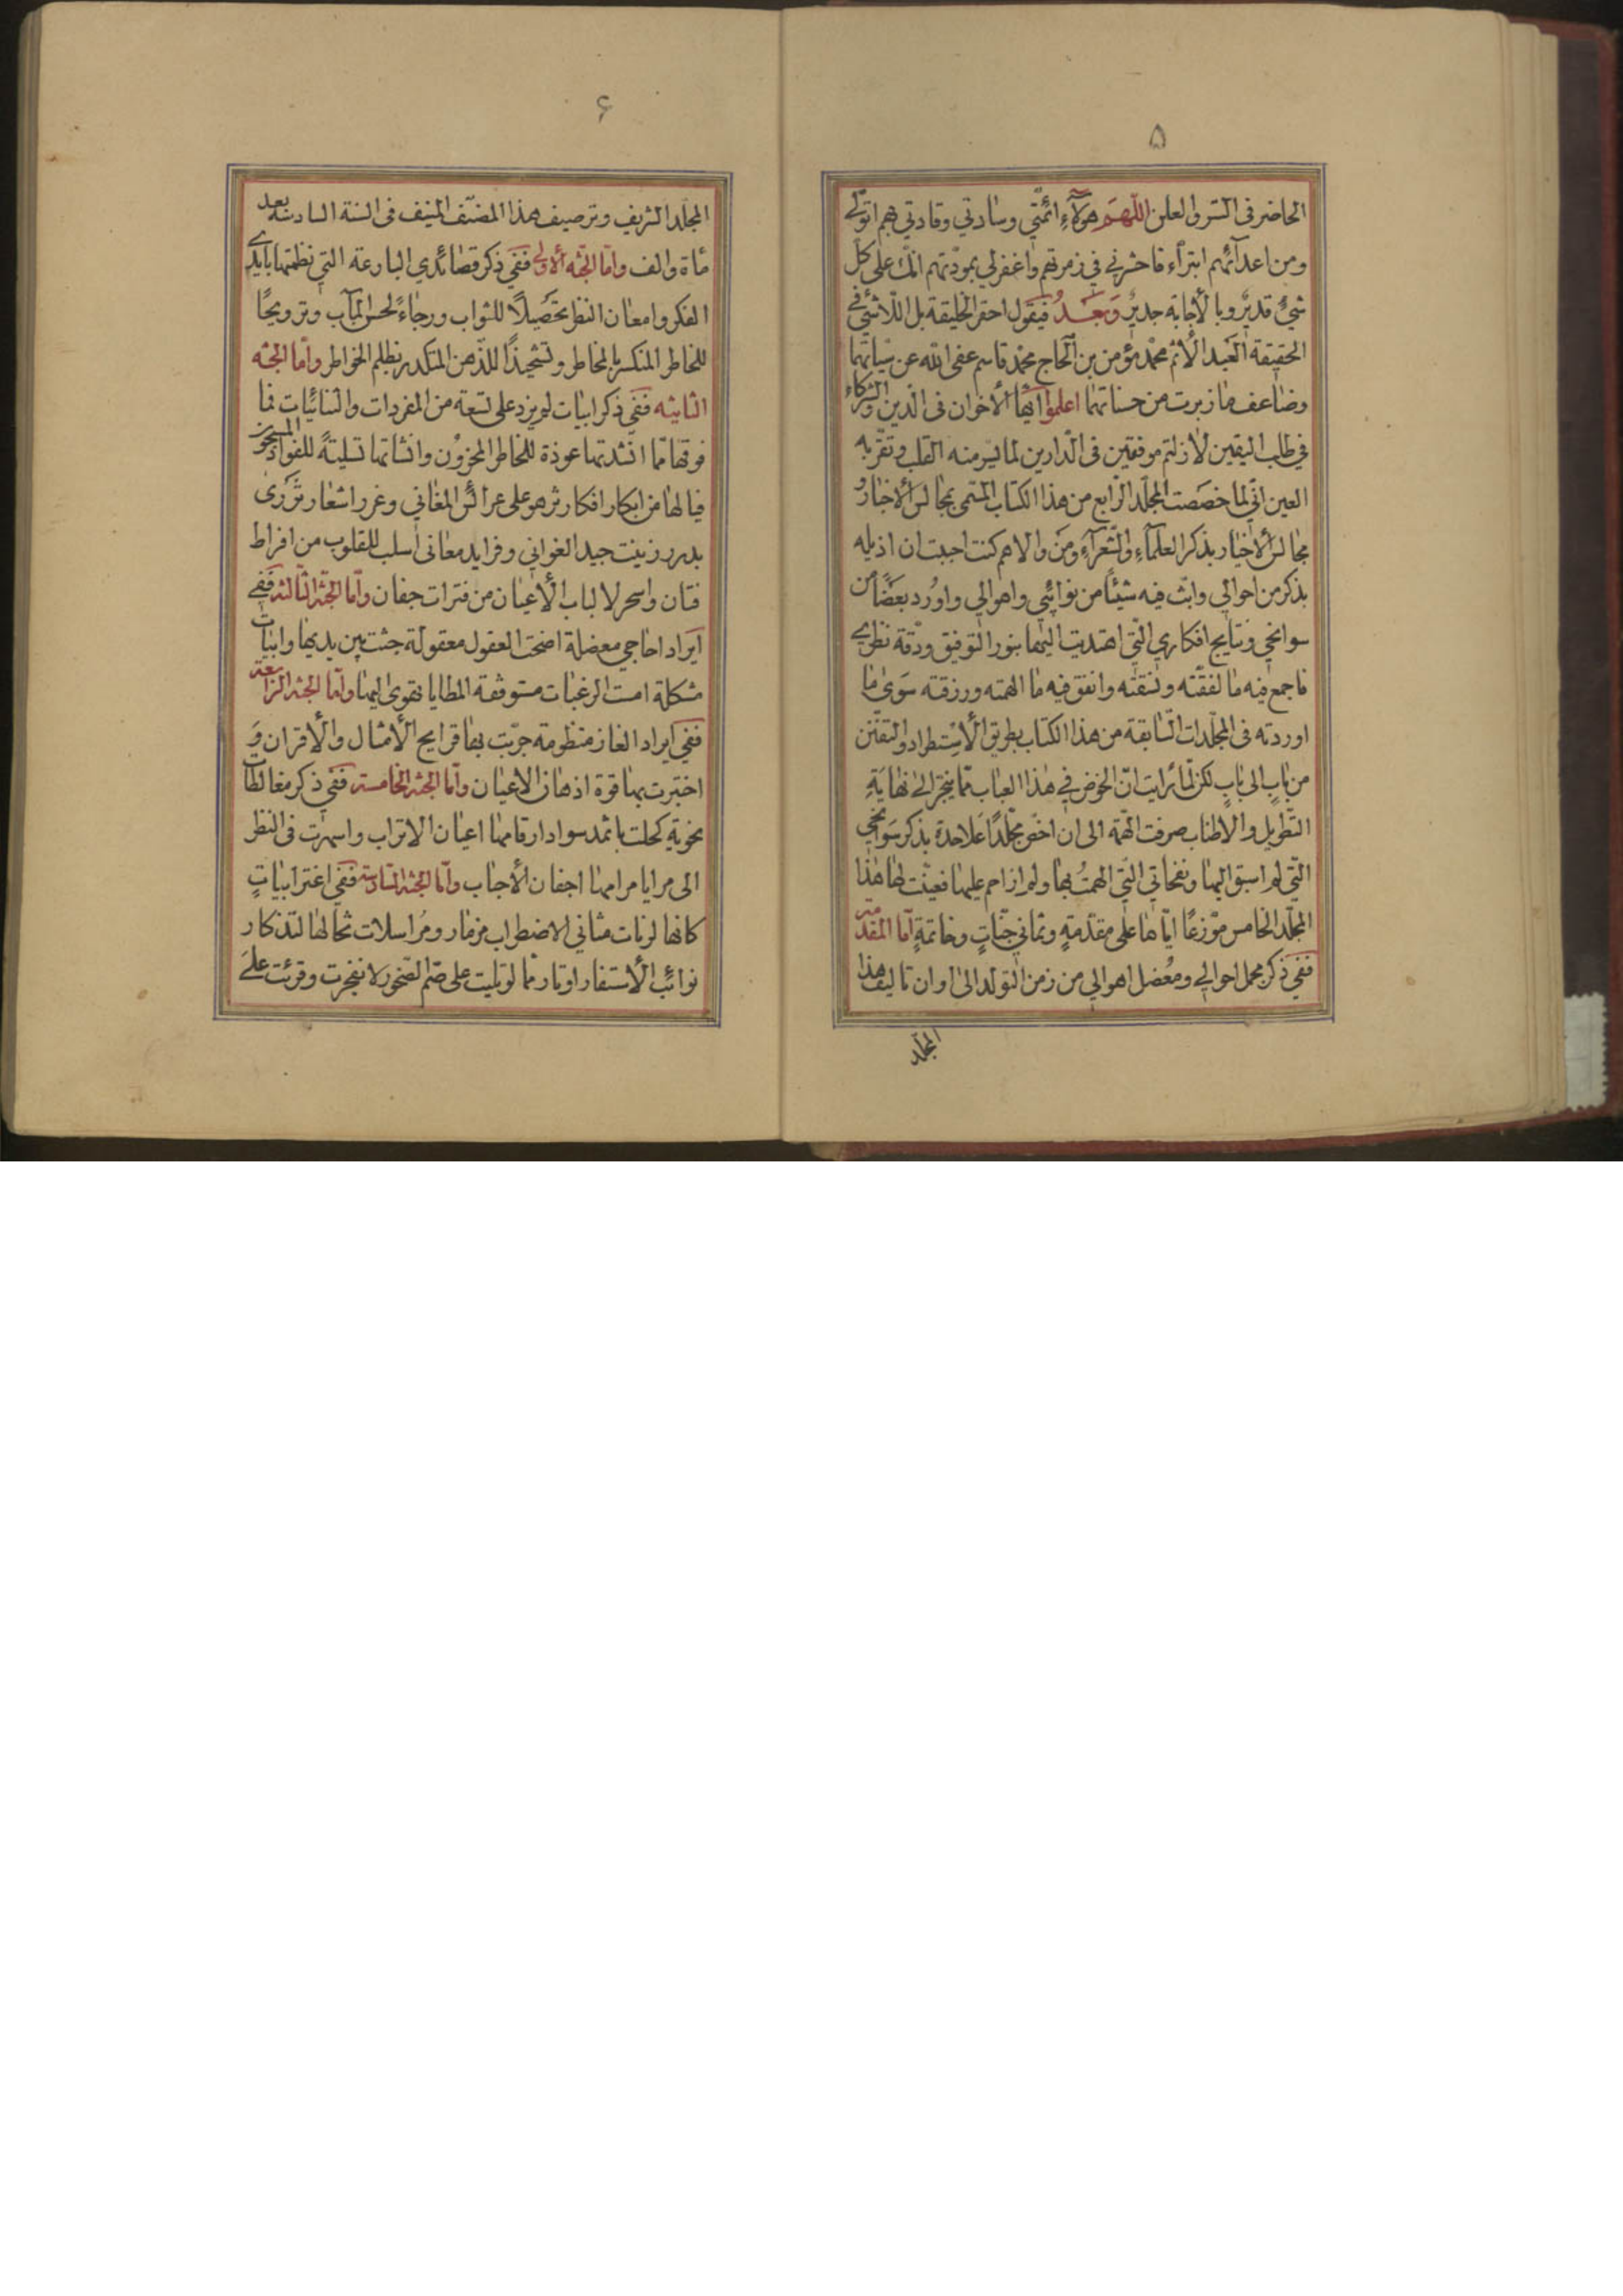 ۵
الحاضر فی السّر والعلن اللّهمّ هؤلآءِ ائمّتی وسادتی وقادتی بهم اتولّی
ومن اعدآئهم ابترّاء فاحشرنی فی زمرتهم واغفرلی بمودّتهم انّک علی کلّ
شیٔ قدیر وبالأجابة جدیر وَبَعْدُ فیقول احقر الخلیقة بل اللّاشیٔ فی
الحقیقة العبد الأثم محمّد مؤمن بن الحاج محمّد قاسم عفی الله عن سیّاتهما
وضاعف مازبرت من حسناتهما اعلموا ایّها الأخوان فی الدّین والشرکاء
فی طلب الیقین لازلتم موفقین فی الدّارین لما یسر منه القلب وتقرّ به
العین انّی لما خصصت المجلّد الرّابع من هذا الکتاب المسمّی بمجالس الأخبار و
مجالس الأخیار بذکر العلمآءِ والشّعرآءِ ومَن والاهم کنت اجبت ان اذیله
بذکر من احوالی وابثّ فیه شیئًا من نوائبی واهوالی واورُد بعضًا من
سوانحی ونتایج افکاری الّتی اهتدیت الیها بنور التوفیق ودقّة نظری
فاجمع فیه ما لفقّته ونسقته وانفق فیه ما الهمته ورزقته سوی ما
اوردته فی المجلّدات السّابقة من هذا الکتاب بطریق الأستطراد والتفنّن
من بابٍ الی بابٍ لکن لمّا رایت انّ الخوض فی هذا العباب ممّا ینجرّ الی نهایَةِ
التّطویل والاطناب صرفت الهمّة الی ان اخصّ مجلّدًا عَلاحدة بذکر سَوانحی
الّتی لم اسبق الیها ونفحاتی الّتی الهمتُ بها ولم ازاحم علیها فعیّنت لها هذا
المجلّد الخامس موّزعًا ایّاها علی مقدّمةٍ وثمانی جنّاتٍ وخاتمةٍ امّا المقدّمة
ففی ذکر مجمل احوالی ومُعضل اهوالی من زمن التولّد الی اوان تالیف هذا
المجلّد
۶
المجلّد الشریف وترصیف هذا المصنّف المنیف فی السنة السادسة بعد
مأة والف وامّا الجنّه الأولی ففی ذکر قصائدی البارعة الّتی نظمتها بایدی
الفکر وامعان النظر تحصیلًا للثواب ورجاءً لحسن المآب وترویحًا
للخاطر المنکسر بالمخاطر وتشحیذًا للذّهن المتکدر بظلم الخواطر وامّا الجنّه
الثانیه ففی ذکر ابیات لم یزد علی تسعة من المفردات والثنائیّات فما
فوقها ممّا انشدتها عوذة للخاطر المحزون وانشاتها تسلیةً للفواد المسجون
فیالها من ابکار افکار تزهو علی عرائس المغانی وغرر اشعار تزری
بدرر زینت جید الغوانی وفراید معانی اسلب للقلوب من افراط
فتان واسحر لالباب الأعیان من فترات جفان وامّا الجنّة الثّالثة ففی
ایراد احاجی معضلة اضحت العقول معقولة جثت بین یدیها وابیات
مشکلة امست الرغبات مستوفقة المطایا نقوی الیها وامّا الجنّة الرّابعة
ففی ایراد الغاز منظومة جرّبت بها قرایح الأمثال والأقران وَ
اختبرت بها قوة اذهان الاعیان وامّا الجنّة الخامسة ففی ذکر مغالطات
نحویّة کحلت باثمد سواد ارقامها اعیان الاتراب واسهرت فی النظر
الی مرایا مرامها اجفان الأجناب وامّا الجنّة السّادسة ففی اغتر ابیاتٍ
کانها لرنات مثانی الاضطراب مزمار ومُراسلات تخالها لتذکار
نوائب الأستفار اوتار ممّا لو تلیت علی صمّ الصّخور لانفجرت وقرئت علی